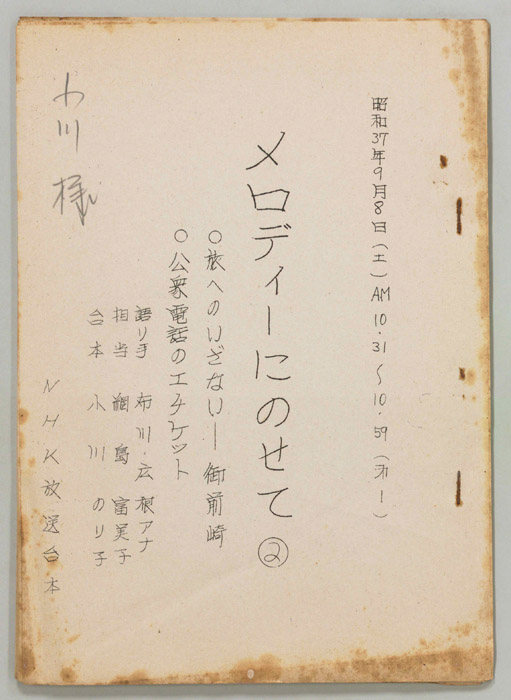 昭和37年9月8日(土)AM10.31~10.59(オ一)
メロディーにのせて②
○旅へのいざない—御前崎
○公衆電話のエチケット
語り手 布川・広根アナ
担当 網島富美子
台本 小川のり子
NHK放送台本
小川様